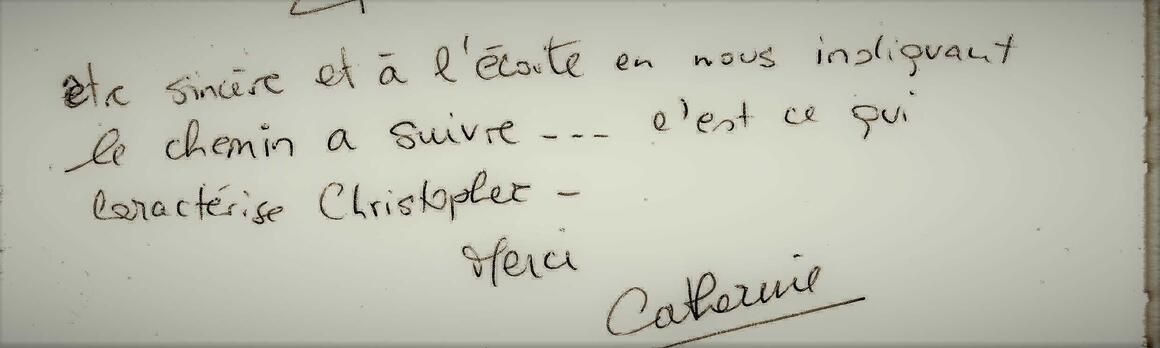 être sincère et à l'écoute en nous indiquant
le chemin a suivre --- c'est ce qui
caractérise Christopher -
Merci
Catherine